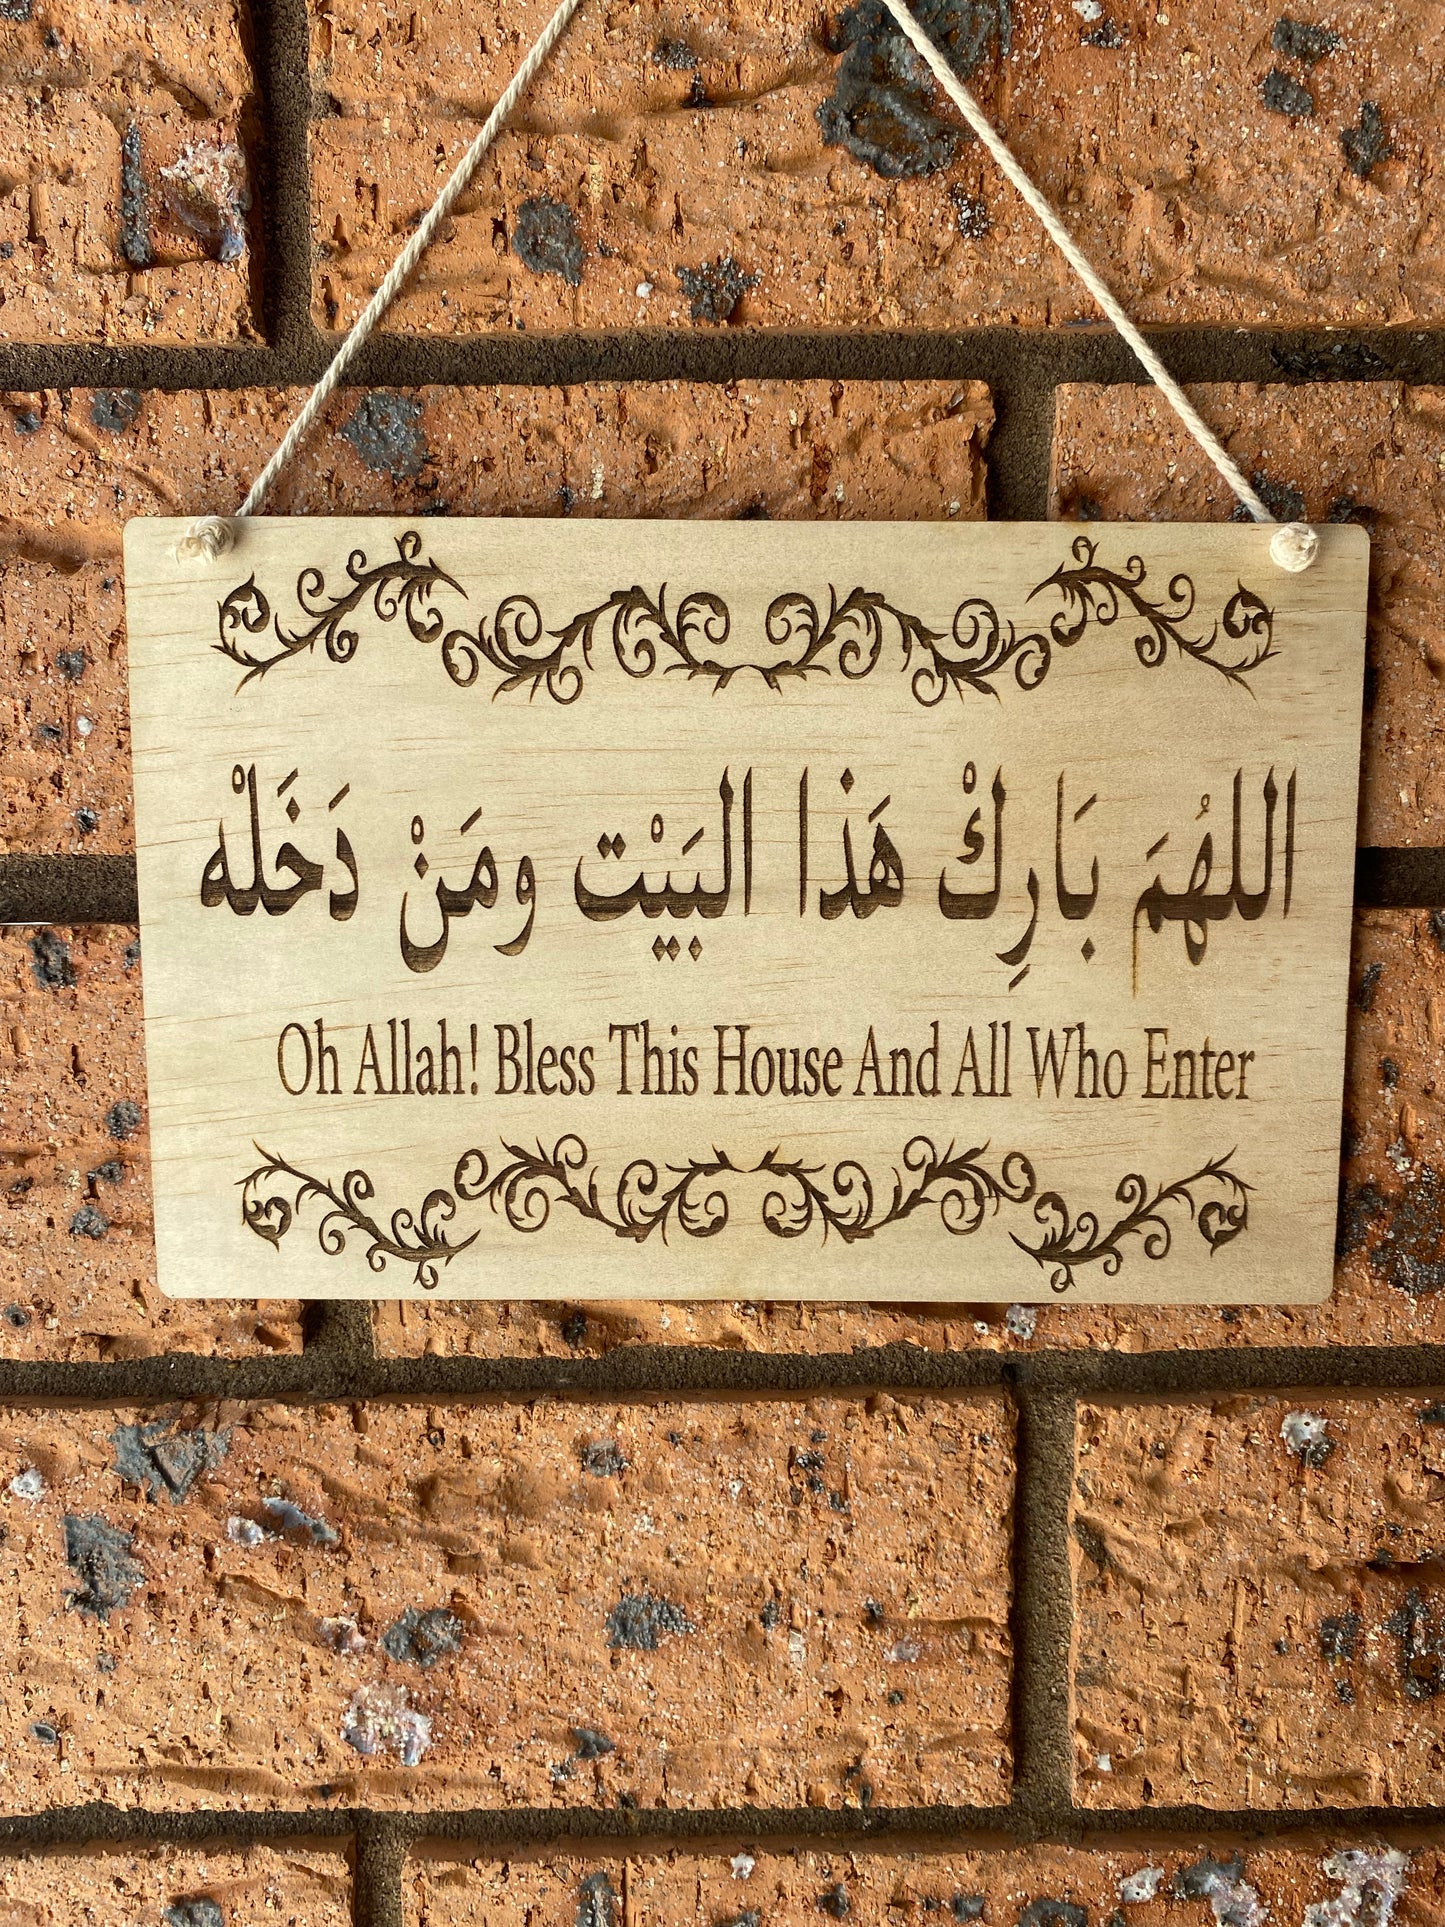 اللهُمَ بَارِكْ هَذا البَيْت ومَنْ دَخَلْه
Oh Allah! Bless This House And All Who Enter